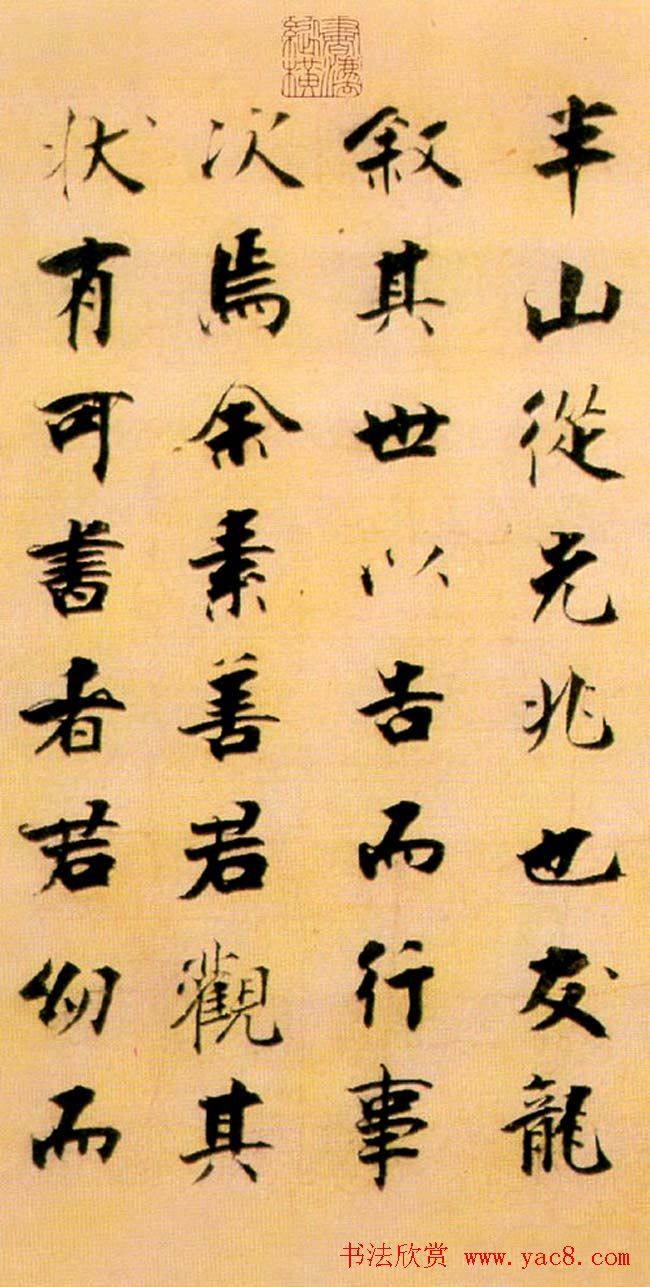 半山從先兆也友龍
叙其世以告而行事
次焉余素善君觀其
狀有可書者君幼而
书法欣赏 www.yac8.com